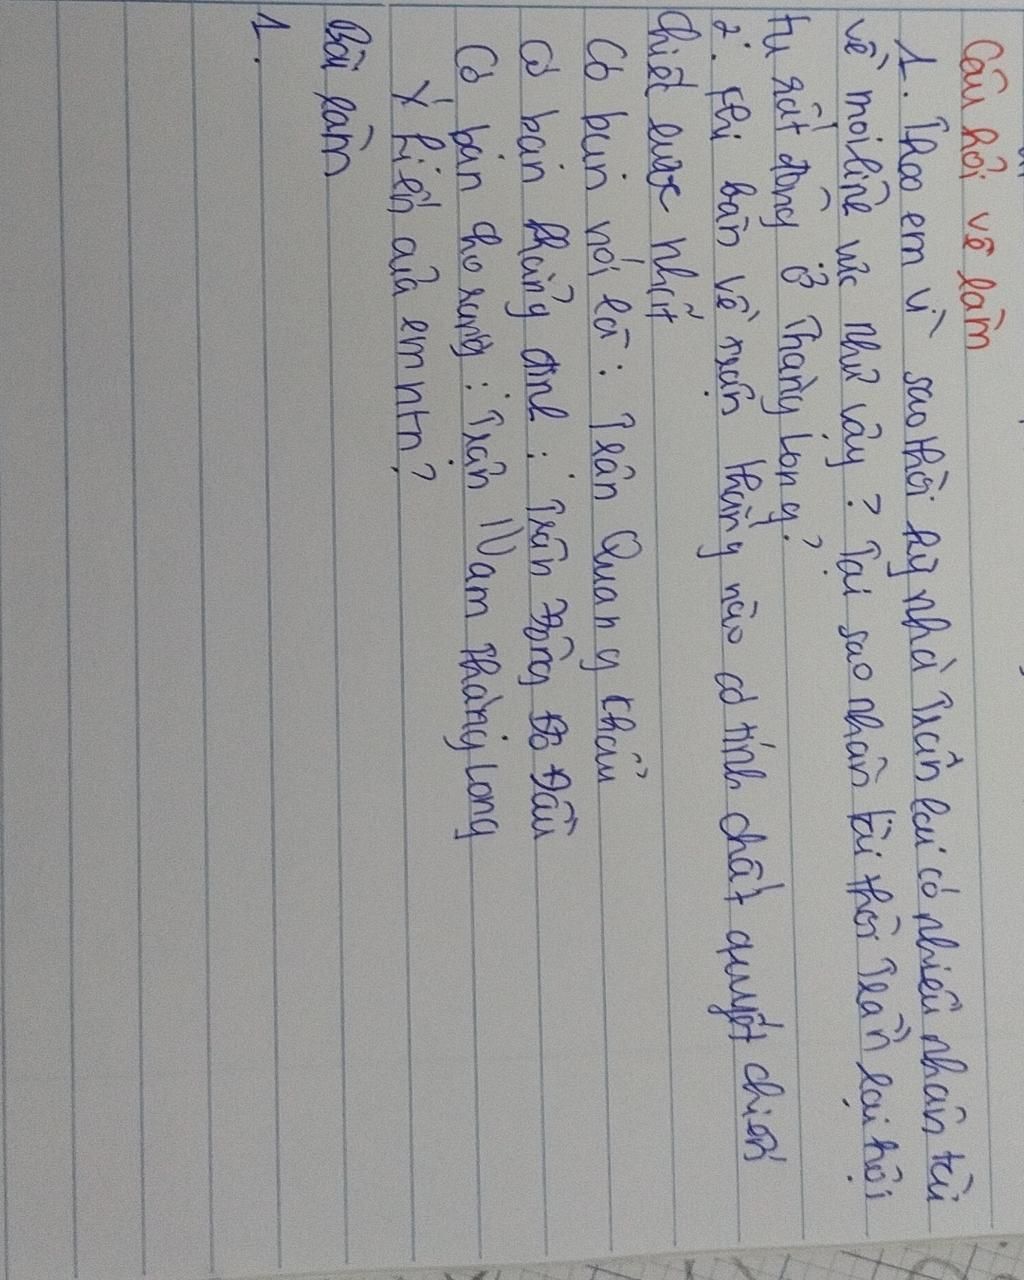 Câu hỏi về làm
1. Theo em vì sao thời kỳ nhà Trần lại có nhiều nhân tài
về mọi lĩnh vực như vậy? Tại sao nhân tài thời Trần lại hội
tụ rất đông ở Thăng Long?
2. Khi bàn về trận thắng nào có tính chất quyết chiến
chiến lược nhất
Có bạn nói là: Trần Quang Khải
Có bạn khẳng định: Trận Đông Bộ Đầu
Có bạn cho rằng: Trận Nam Thăng Long
Ý kiến của em ntn?
Bài làm
1.